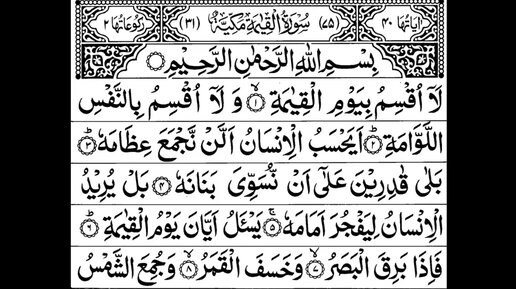 اٰيَاتُهَا ٤٠ (٧٥) سُوْرَةُ الْقِيٰمَةِ مَكِّيَّةٌ (٣١) رُكُوْعَاتُهَا ٢
بِسْمِ اللّٰهِ الرَّحْمٰنِ الرَّحِيْمِ
لَاۤ اُقْسِمُ بِيَوْمِ الْقِيٰمَةِ ۙ﴿١﴾ وَ لَاۤ اُقْسِمُ بِالنَّفْسِ
اللَّوَّامَةِ ؕ﴿٢﴾ اَيَحْسَبُ الْاِنْسَانُ اَلَّنْ نَّجْمَعَ عِظَامَهٗ ؕ﴿٣﴾
بَلٰى قٰدِرِيْنَ عَلٰۤى اَنْ نُّسَوِّىَ بَنَانَهٗ ﴿٤﴾ بَلْ يُرِيْدُ
الْاِنْسَانُ لِيَفْجُرَ اَمَامَهٗ ۚ﴿٥﴾ يَسْـَٔلُ اَيَّانَ يَوْمُ الْقِيٰمَةِ ؕ﴿٦﴾
فَاِذَا بَرِقَ الْبَصَرُ ۙ﴿٧﴾ وَخَسَفَ الْقَمَرُ ۙ﴿٨﴾ وَجُمِعَ الشَّمْسُ